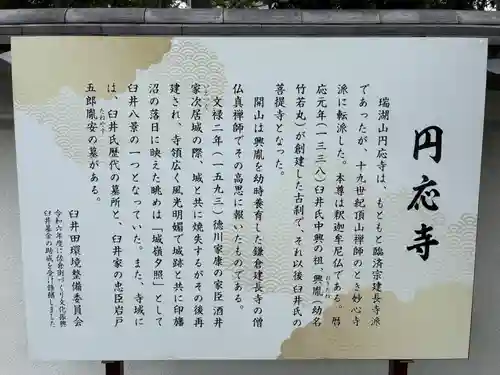 円応寺
瑞湖山円応寺は、もともと臨済宗建長寺派
であったが、十九世紀頂山禅師のとき妙心寺
派に転派した。本尊は釈迦牟尼仏である。暦
応元年(一三三八)臼井氏中興の祖、興胤(幼名
おきたね
竹若丸)が創建した古刹で、それ以後臼井氏の
菩提寺となった。
開山は興胤を幼時養育した鎌倉建長寺の僧
仏真禅師でその高恩に報いたものである。
文禄二年(一五九三)徳川家康の家臣 酒井
家次居城の際、城と共に焼失するがその後再
いえつぐ
建され、寺領広く風光明媚で城跡と共に印旛
沼の落日に映えた眺めは「城嶺夕照」として
臼井八景の一つとなっていた。また、寺域に
は、臼井氏歴代の墓所と、臼井家の忠臣岩戸
五郎胤安の墓がある。
たねやす
臼井田環境整備委員会
令和六年度に佐倉街づくり文化振興
臼井基金の助成を受け修繕しました